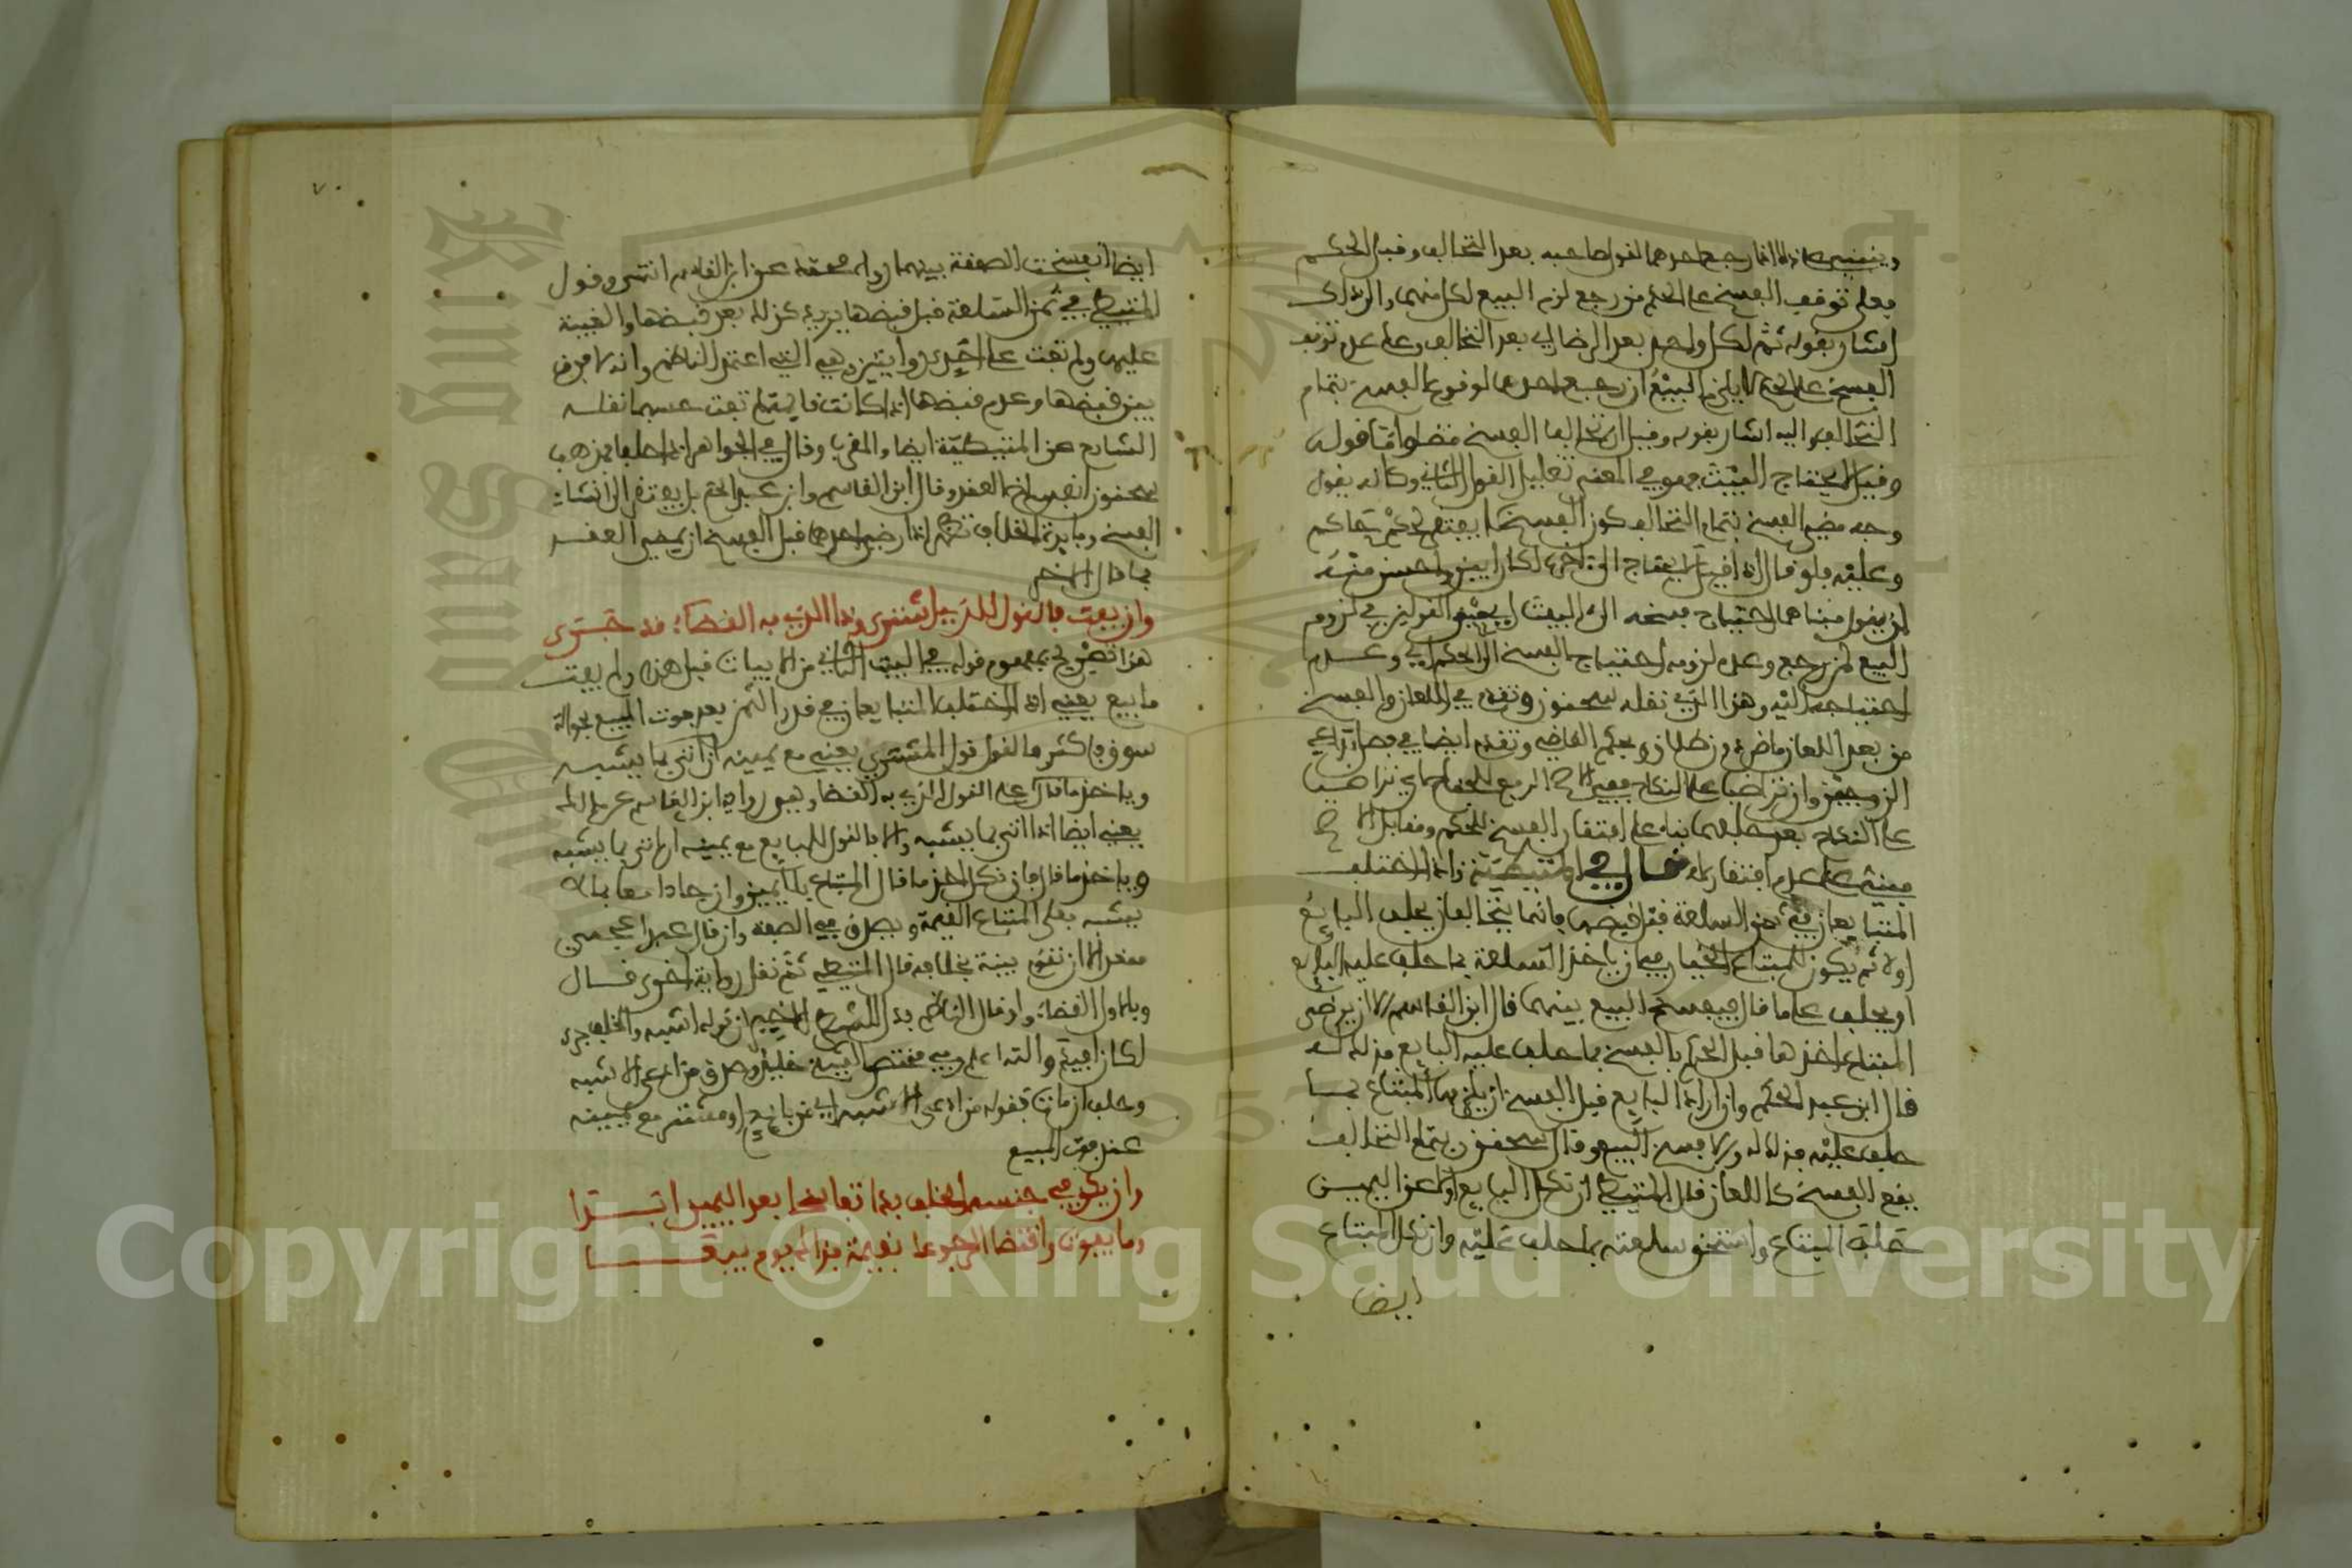 وينبني على ذلك اذا رجع احدهما لقول صاحبه بعد التحالف وقبل الحكم
فعلى توقف الفسخ على الحكم من رجع لزم البيع لكل منهما والى ذلك
اشار بقوله ثم لكل واحد بعد الرضا اي بعد التحالف وعلى عدم توقف
الفسخ على الحكم لا يلزم البيع ان رجع احدهما لوقوع الفسخ بتمام
التحالف واليه اشار بقوله وقيل ان تحالفا الفسخ مضى واما قوله
وقيل لا يحتاج البيت فهو في المعنى تعليل القول الثاني وكانه يقول
وجه مضي الفسخ بتمام التحالف كون الفسخ لا يفتقر لحكم حاكم
وعليه فلو قال اذ قيل لا يحتاج الى اخره لكان ابين واحسن منه
ان يقول مبناهما احتياج فسخه الى البيت اي مبنى القولين في لزوم
البيع لمن رجع وعدم لزومه احتياج الفسخ الى الحكم اي وعدم
احتياجه اليه وهذا الذي نقله سحنون وتقدم في اللعان والفسخ
من بعد اللعان ماض دون طلاق وبحكم القاضي وتقدم ايضا في فصل تداعي
الزوجين وان تراضيا على النكاح ففي الاصح الرفع للجناح اي تراضيا
على النكاح بعد حلفهما بناء على افتقار الفسخ للحكم ومقابل الاصح
مبني على عدم افتقاره قال في المتيطية واذا اختلف
المتبايعان في ثمن السلعة قبل قبضها فانما يتحالفان يحلف البائع
اولا ثم يكون للمبتاع الخيار في ان ياخذ السلعة بما حلف عليه البائع
او يحلف على ما قال فيفسخ البيع بينهما قال ابن القاسم الا ان يرضى
المبتاع اخذها قبل الحكم بالفسخ بما حلف عليه البائع فذلك له
قال ابن عبد الحكم وان اراد البائع قبل الفسخ ان يلزمها المبتاع بما
حلف عليه فذلك له والا فسخ البيع وقال سحنون بتمام التحالف
يقع الفسخ كاللعان قال المتيطي ان نكل البائع اولا عن اليمين
حلف المبتاع واستحق سلعته بما حلف عليه وان نكل المبتاع
ايضا
٧٠
ايضا انفسخت الصفقة بينهما رواه عن ابن القاسم انتهى وقول
المتيطي في ثمن السلعة قبل قبضها يريد وكذلك بعد قبضها والغيبة
عليها ولم تفت على احدى روايتين وهي التي اعتمد الناظم وانه لا فرق
بين قبضها وعدم قبضها اذا كانت قائمة لم تفت حسبما نقله
الشارح عن المتيطية ايضا والمقرب وقال في الجواهر اذا حلفا فمذهب
سحنون انفساخ العقد وقال ابن القاسم وابن عبد الحكم بل يفتقر الى انشاء
الفسخ وفائدة الخلاف تظهر اذا رضي احدهما قبل الفسخ ان يمضي العقد
بما قال الاخر
وان يفت فالقول للذي اشترى وذا الذي به القضاء قد جرى
هذا تصريح بمفهوم قوله في البيت الثاني من الابيات قبل هذه ولم يفت
ما بيع يعني اذا اختلف المتبايعان في قدر الثمن بعد فوت المبيع بحوالة
سوق فاكثر فالقول قول المشتري يعني مع يمينه ان اتى بما يشبه
وياخذ ما قال على القول الذي به القضاء وهي رواية ابن القاسم عن مالك
يعني ايضا اذا اتى بما يشبه والا فالقول للبائع مع يمينه ان اتى بما يشبه
وياخذ ما قال فان نكل اخذ ما قال المبتاع بلا يمين وان جاءا معا بما لا
يشبه فعلى المبتاع القيمة ويصدق في الصفة وان قال عبدا اعجمي
مقعد الا ان تقوم بينة بخلافه قال المتيطي ثم نقل رواية اخرى قال
وبالاول القضاء ولو قال الناظم بدل الشطر الاخير ان قوله اشبه والخلف جرى
لكان افيد والله اعلم وفي مختصر الشيخ خليل وصدق من ادعى الاشبه
وحلف ان فات فقوله من ادعى الاشبه اي من بائع او مشتر مع يمينه
عند فوت المبيع
وان يكن في جنسه الخلف بدا تفاسخا بعد اليمين ابدا
وما يفوت واقتضى الرجوعا بقيمة فذاك يوم بيعا